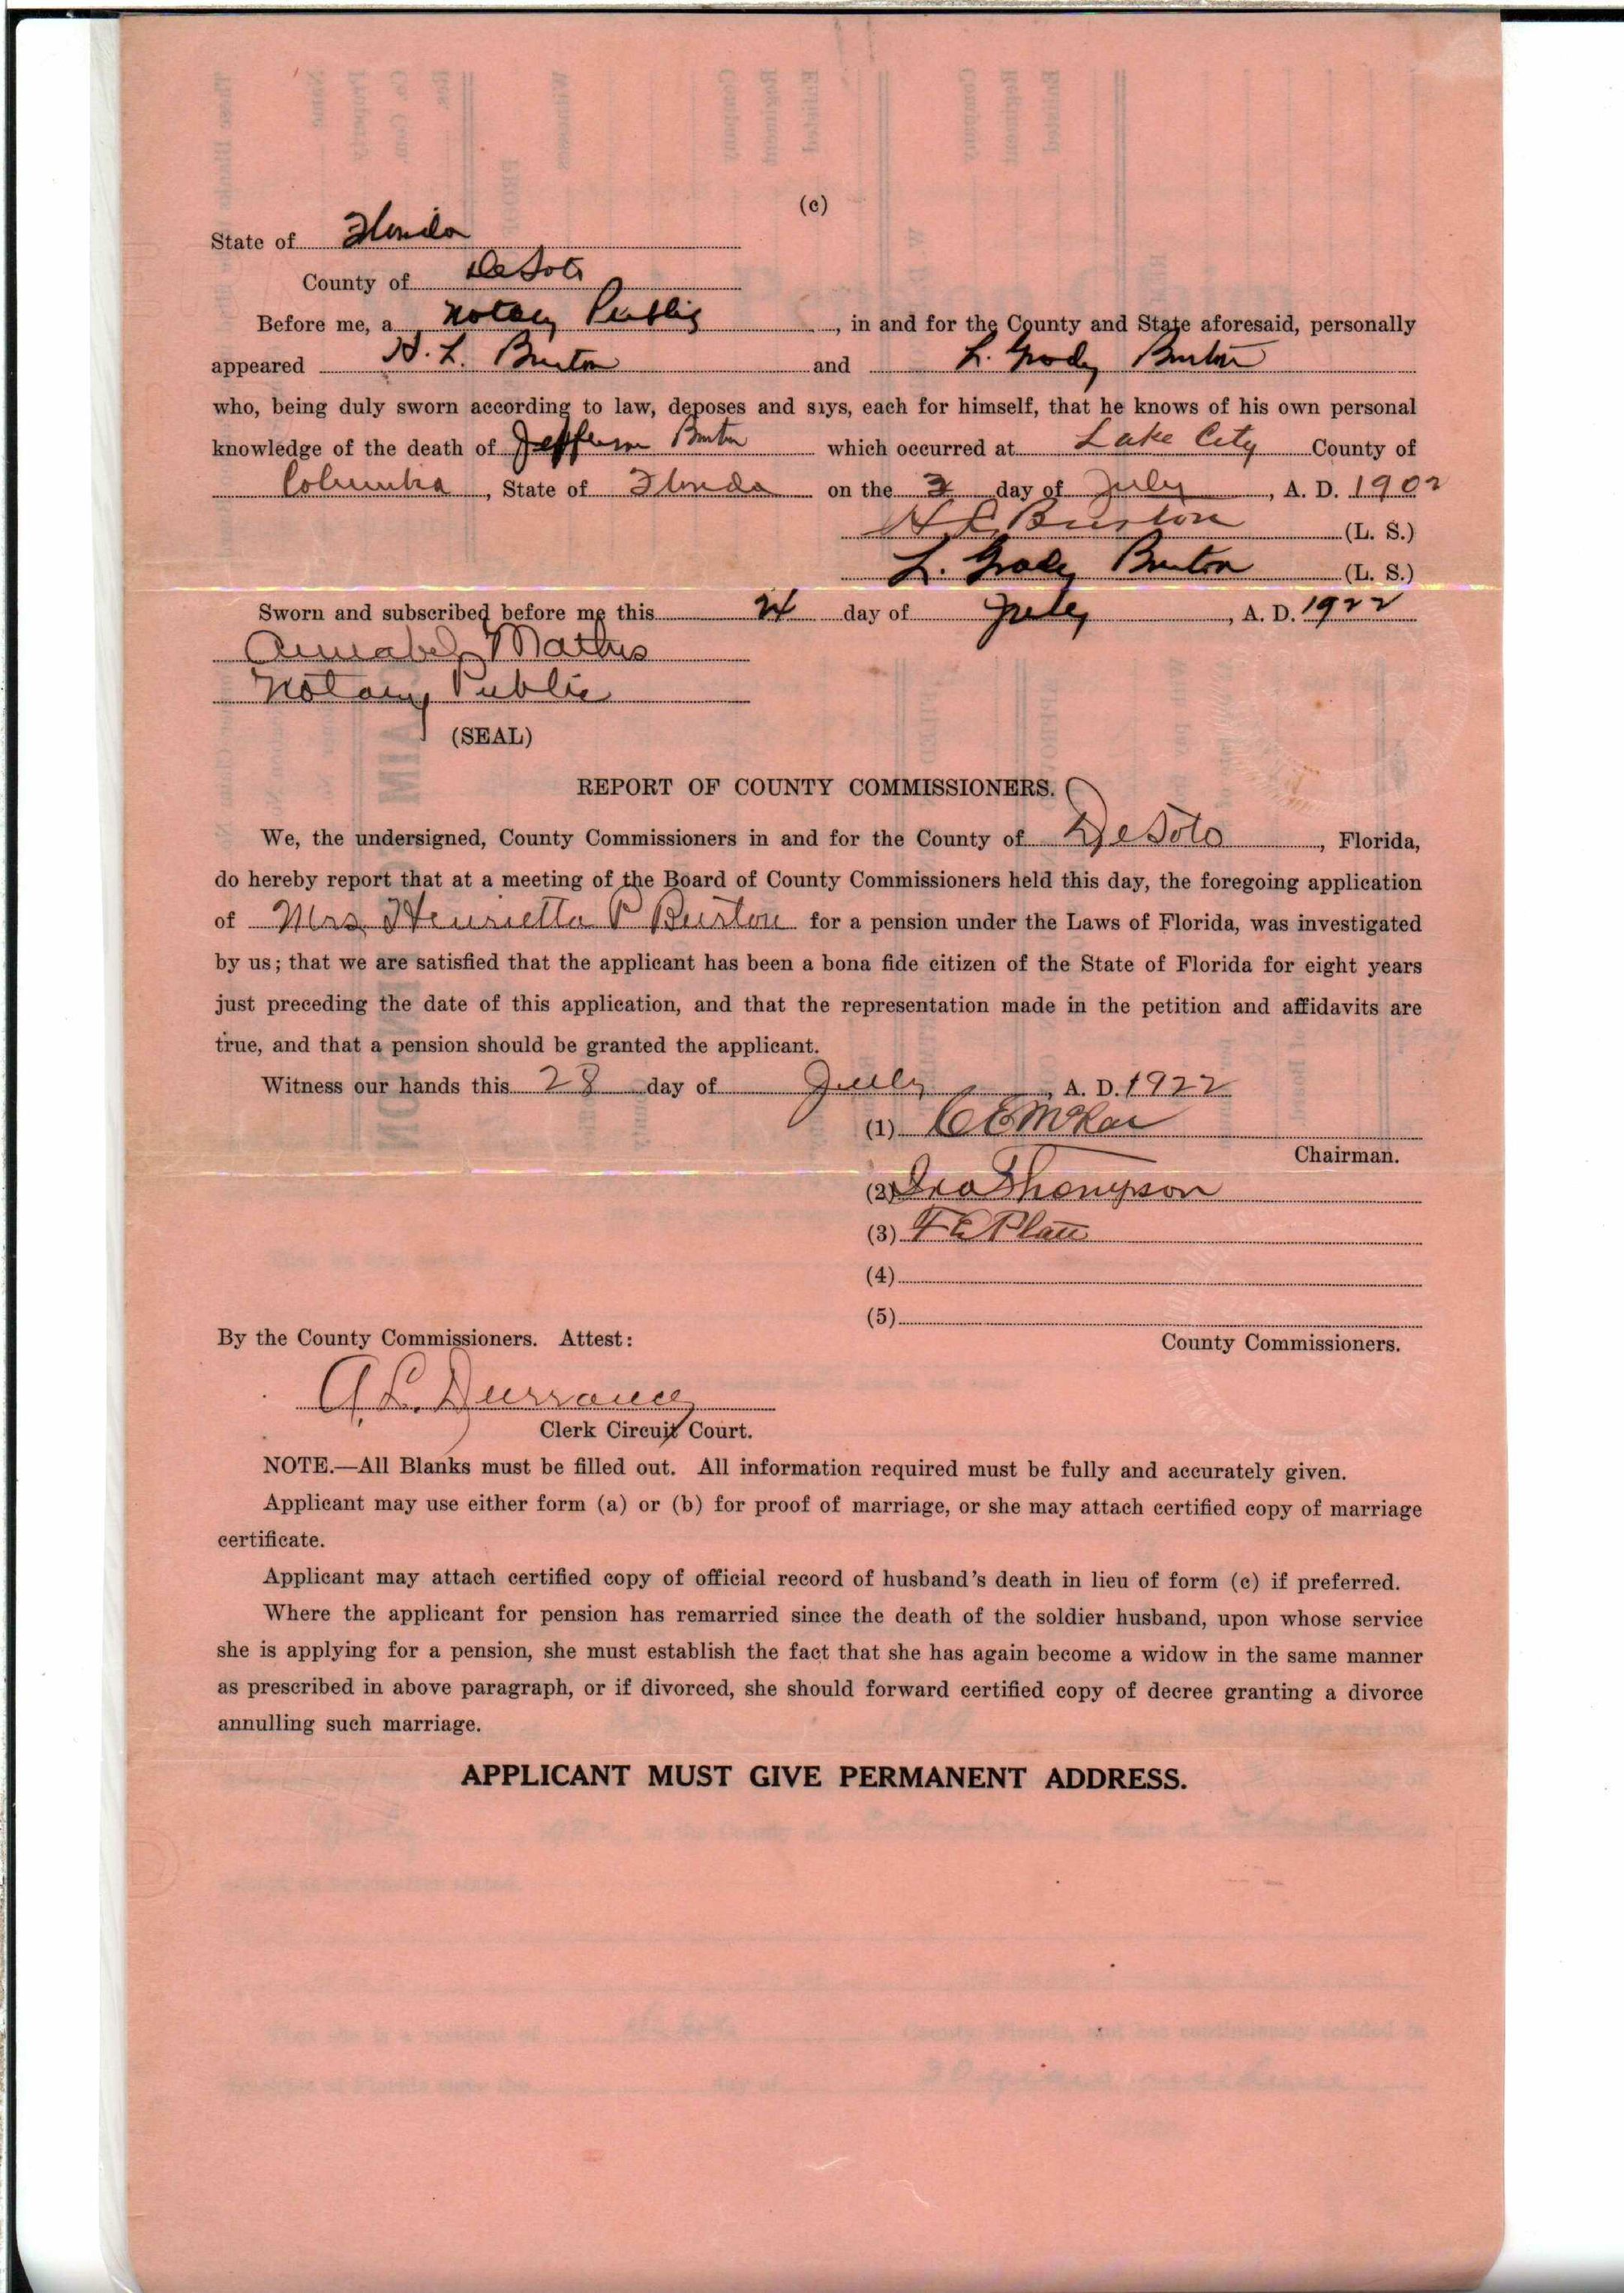 (c)
State of Florida
County of DeSoto
Before me, a Notary Public, in and for the County and State aforesaid, personally
appeared H. L. Burton and L. Grady Burton
who, being duly sworn according to law, deposes and says, each for himself, that he knows of his own personal
knowledge of the death of Jefferson Burton which occurred at Lake City County of
Columbia, State of Florida on the 2 day of July, A. D. 1902
H L Burton (L. S.)
L. Grady Burton (L. S.)
Sworn and subscribed before me this 24 day of July, A. D. 1922
Annabel Mathis
Notary Public
(SEAL)
REPORT OF COUNTY COMMISSIONERS.
We, the undersigned, County Commissioners in and for the County of DeSoto, Florida,
do hereby report that at a meeting of the Board of County Commissioners held this day, the foregoing application
of Mrs Henrietta P Burton for a pension under the Laws of Florida, was investigated
by us; that we are satisfied that the applicant has been a bona fide citizen of the State of Florida for eight years
just preceding the date of this application, and that the representation made in the petition and affidavits are
true, and that a pension should be granted the applicant.
Witness our hands this 28 day of July, A. D. 1922
(1) C E McKay
Chairman.
(2) Ira Thompson
(3) F E Platt
(4)
(5)
By the County Commissioners. Attest:
County Commissioners.
A. L. Durrance
Clerk Circuit Court.
NOTE.—All Blanks must be filled out. All information required must be fully and accurately given.
Applicant may use either form (a) or (b) for proof of marriage, or she may attach certified copy of marriage
certificate.
Applicant may attach certified copy of official record of husband's death in lieu of form (c) if preferred.
Where the applicant for pension has remarried since the death of the soldier husband, upon whose service
she is applying for a pension, she must establish the fact that she has again become a widow in the same manner
as prescribed in above paragraph, or if divorced, she should forward certified copy of decree granting a divorce
annulling such marriage.
APPLICANT MUST GIVE PERMANENT ADDRESS.